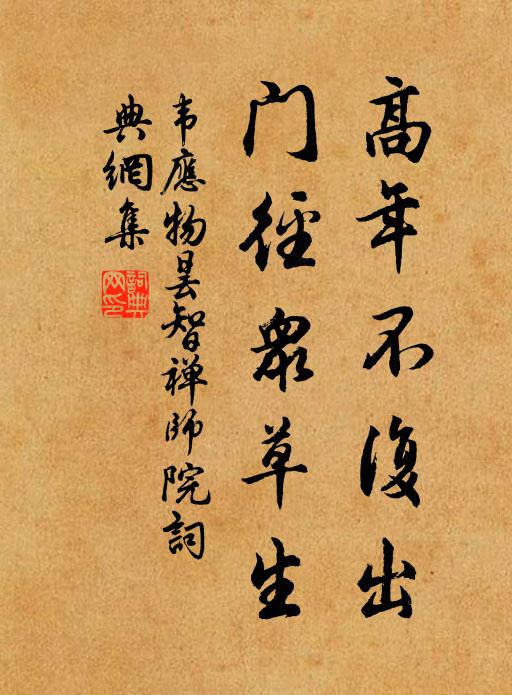 高年不復出
門徑眾草生
韦應物昙智禅師院詞
典網集
詞典
网印